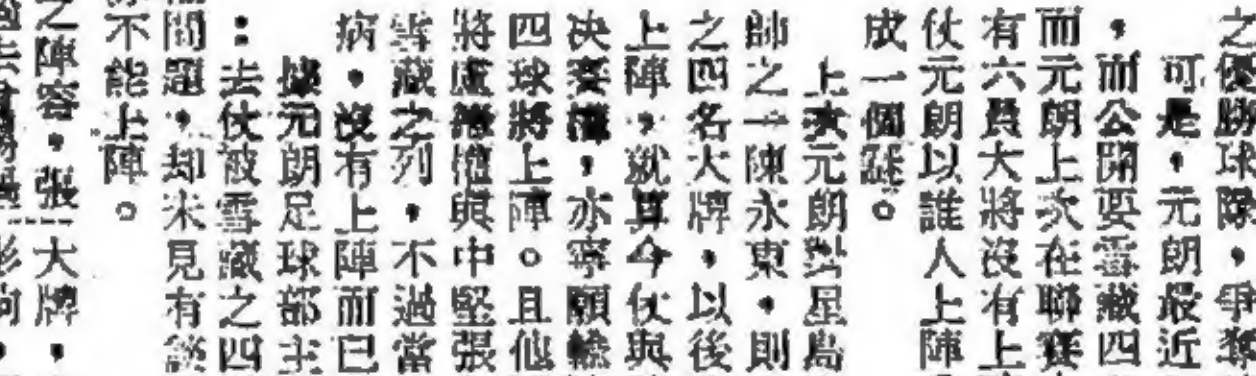 之優勝球隊，爭奪
可是，元朗最近
，而公開要雪藏四
而元朗上次在聯賽
有六員大將沒有上
仗元朗以誰人上陣
成一個謎。
上次元朗對星島
帥之一陳永東，則
之四名大牌，以後
上陣，就算今仗與
决賽權，亦寧願輸
四球將上陣。且他
將盧德權與中堅張
雪藏之列，不過當
病，沒有上陣而已
據元朗足球部主
：去仗被雪藏之四
問題，却未見有談
不能上陣。
之陣容，張大牌，